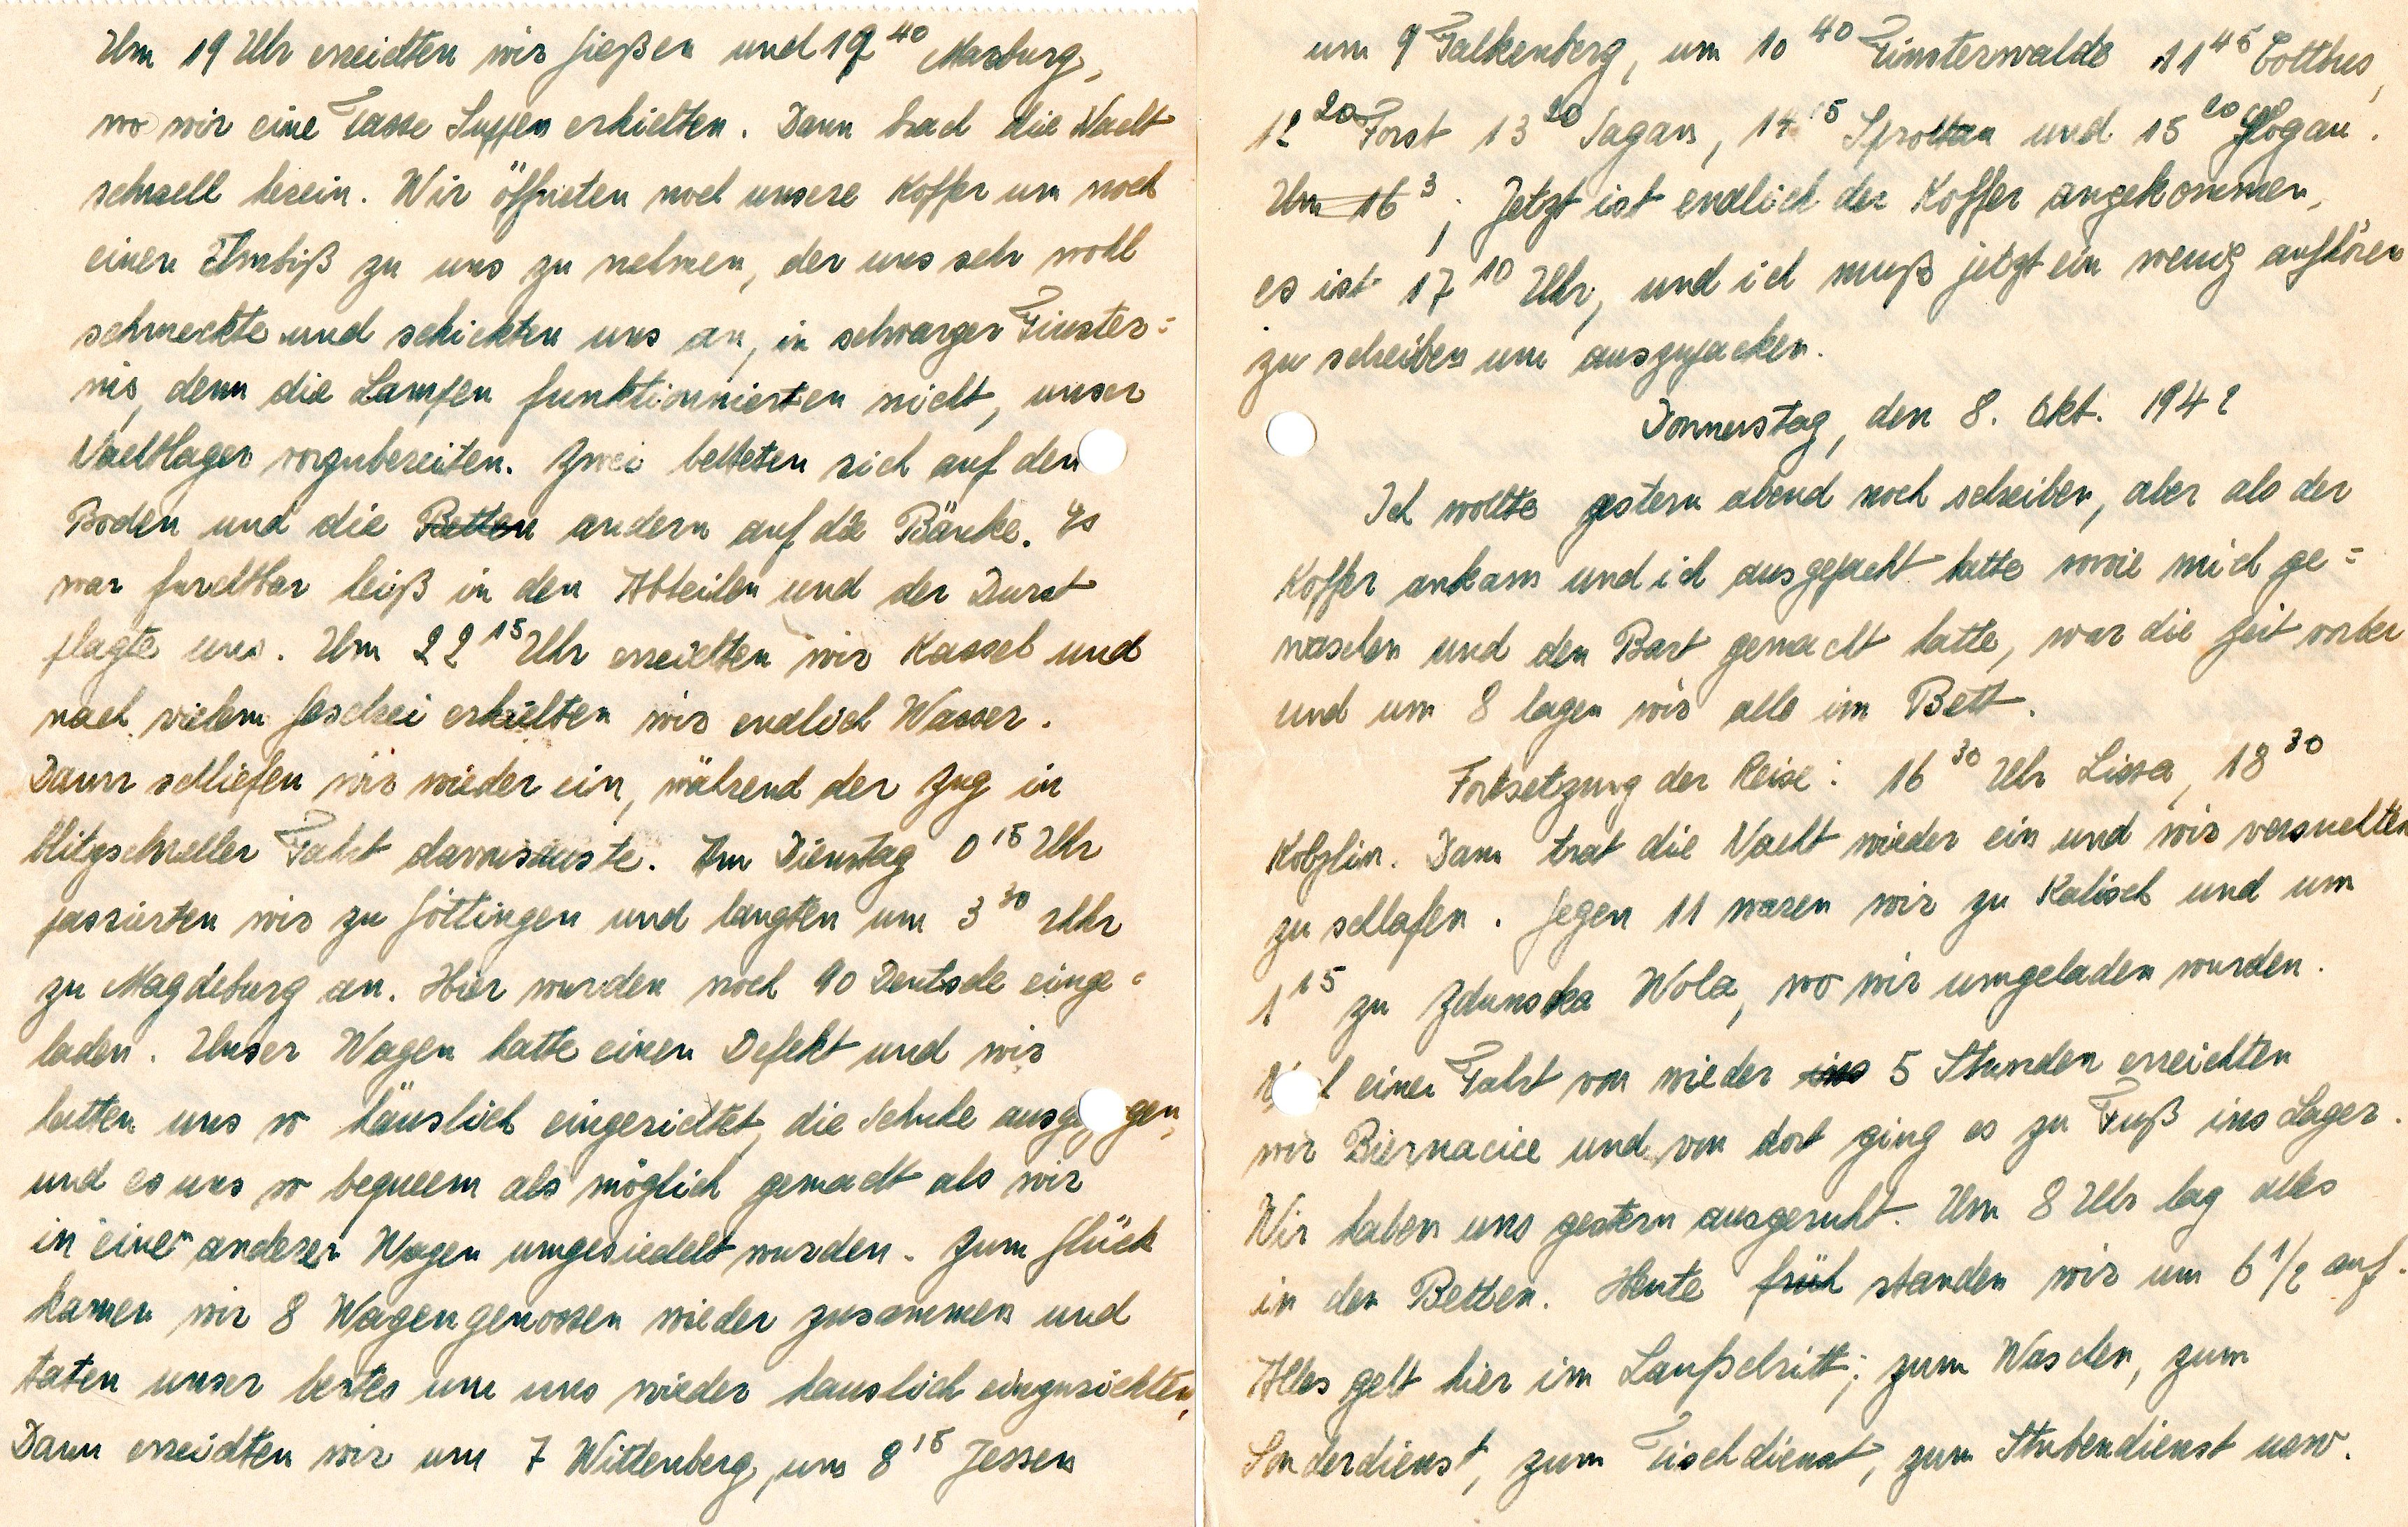 Um 19 Uhr erreichten wir Gießen und 19⁴⁰ Marburg,
wo wir eine Tasse Suppen erhielten. Dann brach die Nacht
schnell herein. Wir öffneten noch unsere Koffer um noch
einen Imbiß zu uns zu nehmen, der uns sehr wohl
schmeckte und schickten uns an, in schwarzer Finster=
nis, denn die Lampen funktionnierten nicht, unser
Nachtlager vorzubereiten. Zwei betteten sich auf den
Boden und die Betten andern auf die Bänke. Es
war furchtbar heiß in den Abteilen und der Durst
plagte uns. Um 22¹⁵ Uhr erreichten wir Kassel und
nach vielem Geschrei erhielten wir endlich Wasser.
Dann schliefen wir wieder ein, während der Zug in
blitzschneller Fahrt davonsauste. Am Dienstag 0¹⁵ Uhr
passierten wir zu Göttingen und langten um 3³⁰ Uhr
zu Magdeburg an. Hier wurden noch 90 Deutsche einge=
laden. Unser Wagen hatte einen Defekt und wir
hatten uns so häuslich eingerichtet, die Schuhe ausge gen,
und es uns so bequeem als möglich gemacht als wir
in einen anderen Wagen umgesiedelt wurden. Zum Glück
kamen wir 8 Wagengenossen wieder zusammen und
taten unser bestes um uns wieder hauslich einzurichten,
Dann erreichten wir um 7 Wittenberg, um 8¹⁵ Jessen
um 9 Falkenberg, um 10⁴⁰ Finsterwalde 11⁴⁵ Cottbus,
12²⁰ Forst 13²⁰ Sagan, 14¹⁵ Sprottau und 15²⁰ Glogau.
Um 16³; Jetzt ist endlich der Koffer angekommen,
es ist 17¹⁰ Uhr, und ich muß jetzt ein wenig aufhören
zu schreiben um auszupacken.
Donnerstag, den 8. Okt. 1942
Ich wollte gestern abend noch schreiben, aber als der
Koffer ankam und ich ausgepackt hatte sowie mich ge=
waschen und den Bart gemacht hatte, war die Zeit vorbei
und um 8 lagen wir alle im Bett.
Fortsetzung der Reise: 16³⁰ Uhr Lissa, 18³⁰
Kobylin. Dann trat die Nacht wieder ein und wir versuchten
zu schlafen. Gegen 11 waren wir zu Kalisch und um
1¹⁵ zu Zdunska Wola, wo wir umgeladen wurden.
N h einer Fahrt von wieder ins 5 Stunden erreichten
wir Biernacice und von dort ging es zu Fuß ins Lager.
Wir haben uns gestern ausgeruht. Um 8 Uhr lag alles
in den Betten. Heute früh standen wir um 6 1/2 auf.
Alles geht hier im Laufschritt; zum Waschen, zum
Sonderdienst, zum Tischdienst, zum Stubendienst usw.